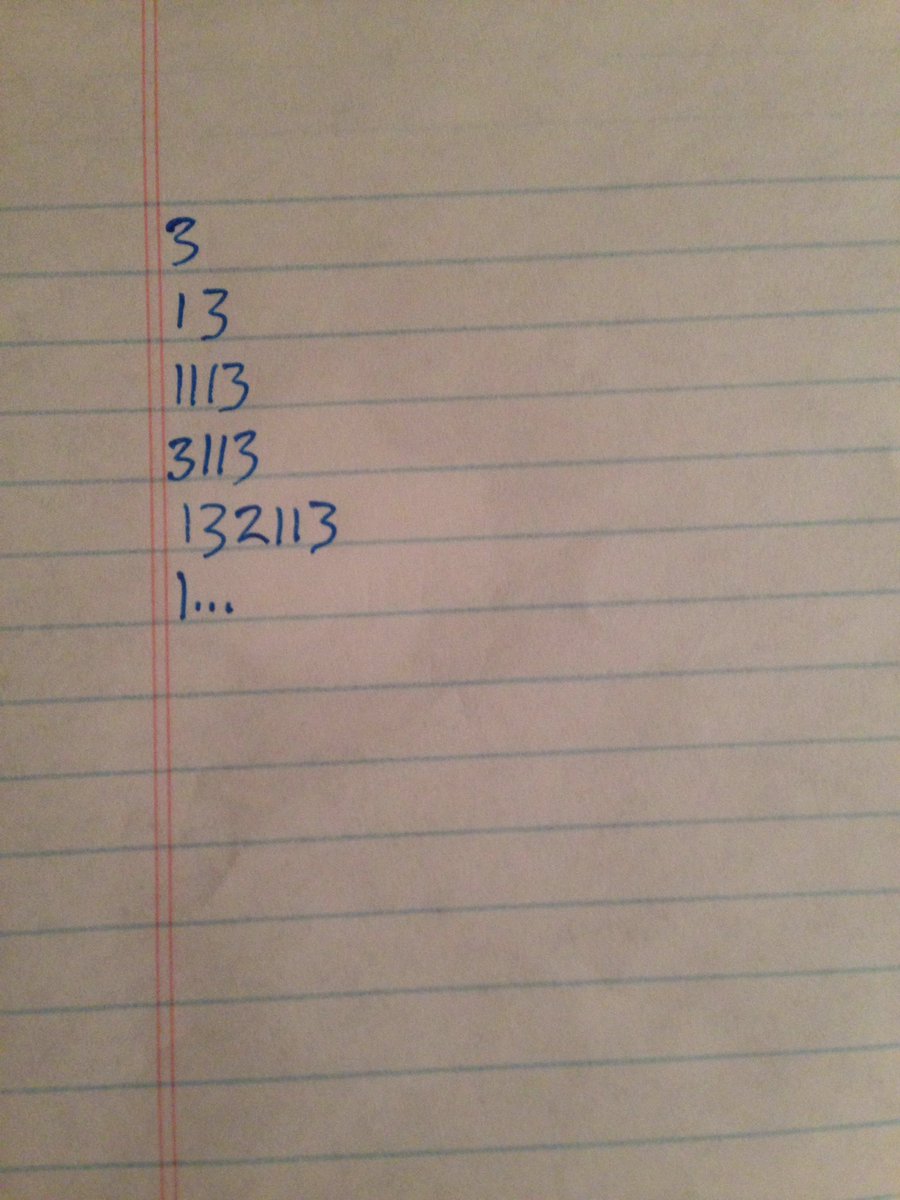 3
13
1113
3113
132113
1...